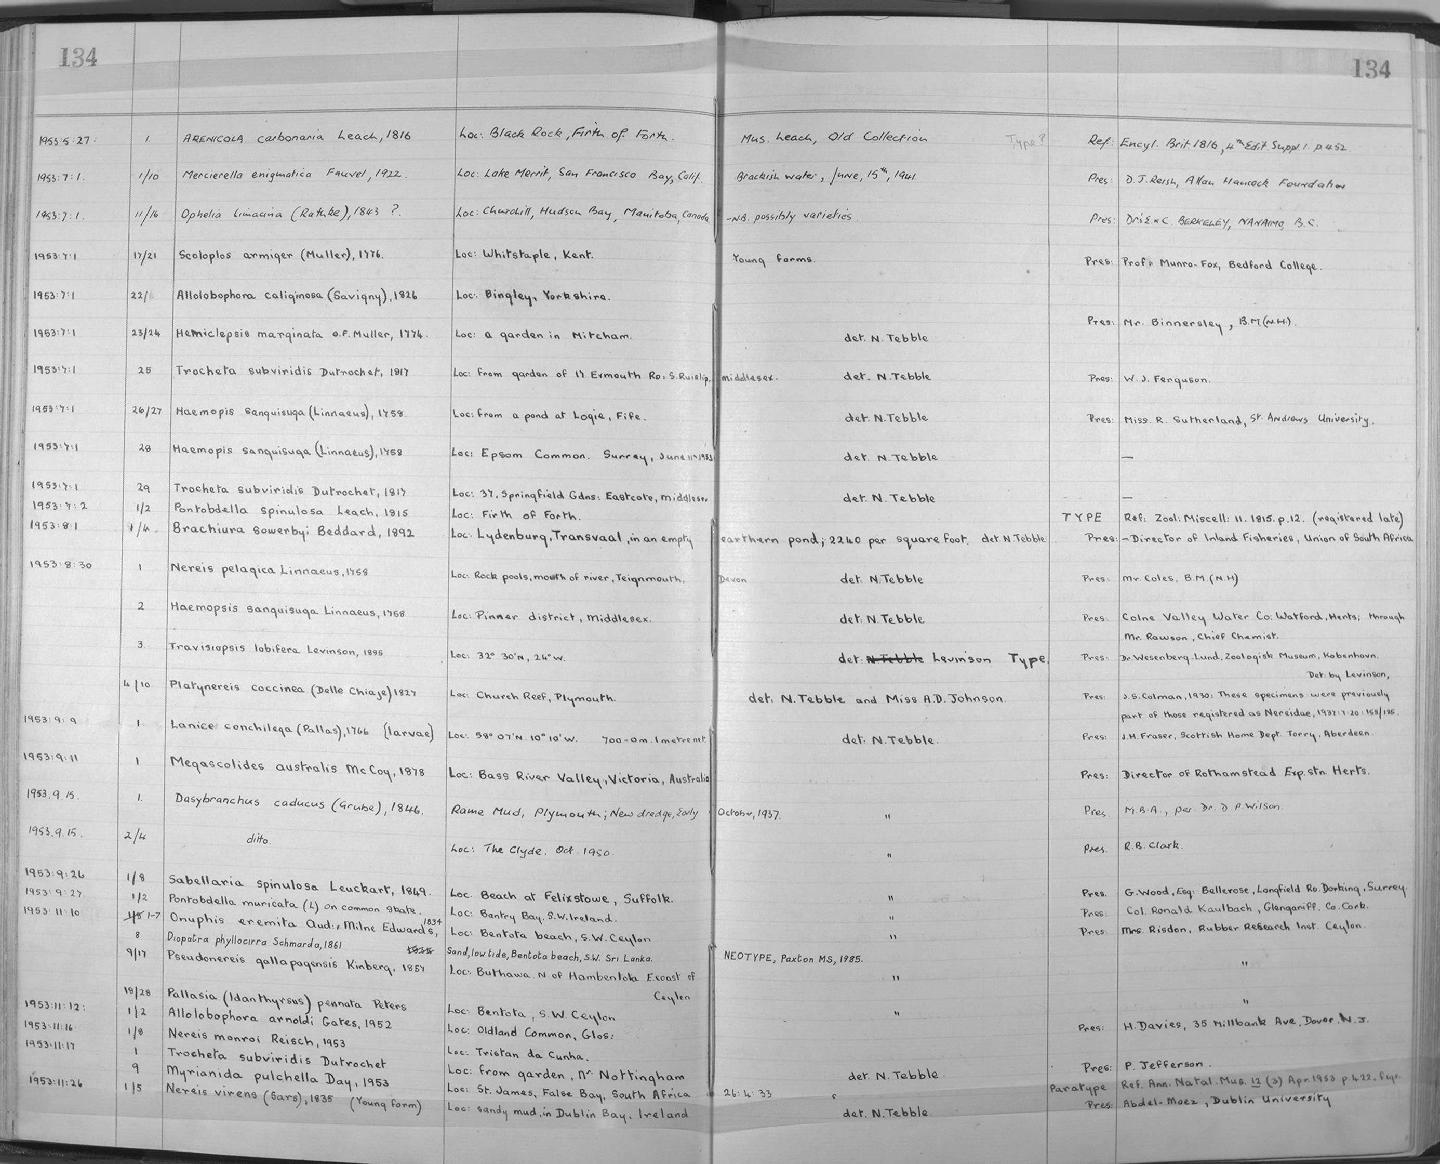 134 134
1953.5.27. 1. ARENICOLA carbonaria Leach, 1816 Loc: Black Rock, Firth of Forth. Mus. Leach, Old Collection Type? Ref: Encyl. Brit 1816, 4th Edit Suppl 1. p.452
1953.7.1. 1/10 Mercierella enigmatica Fauvel, 1922. Loc: Lake Merrit, San Francisco Bay, Calif. Brackish water, June, 15th, 1941 Pres: D.J. Reish, Allan Hancock Foundation
1953.7.1. 11/16 Ophelia limacina (Rathke), 1843 ?. Loc: Churchill, Hudson Bay, Manitoba, Canada -N.B. possibly varieties. Pres: Drs E & C. BERKELEY, NANAIMO, B.C.
1953.7.1 17/21 Scoloplos armiger (Muller), 1776. Loc: Whitstaple, Kent. Young forms. Pres: Prof. Munro-Fox, Bedford College.
1953:7:1 22/ Allolobophora caliginosa (Savigny), 1826 Loc: Bingley, Yorkshire.
1953:7:1 23/24 Hemiclepsis marginata O.F. Muller, 1774. Loc: a garden in Mitcham. det. N. Tebble Pres: Mr. Binnersley, B.M.(N.H.).
1953:7:1 25 Trocheta subviridis Dutrochet, 1817 Loc: From garden of 17. Exmouth Rd: S. Ruislip, middlesex. det. N. Tebble Pres: W. J. Ferguson.
1953:7:1 26/27 Haemopis sanguisuga (Linnaeus), 1758. Loc: from a pond at Logie, Fife. det. N. Tebble Pres: Miss. R. Sutherland, St. Andrews University.
1953:7:1 28 Haemopis sanguisuga (Linnaeus), 1758 Loc: Epsom Common. Surrey, June 11th 1953 det. N. Tebble —
1953:7:1 29 Trocheta subviridis Dutrochet, 1817 Loc: 37, Springfield Gdns: Eastcote, middlesex det. N. Tebble —
1953:7:2 1/2 Pontobdella spinulosa Leach, 1815 Loc: Firth of Forth. TYPE Ref: Zool: Miscell: 11. 1815. p.12. (registered late)
1953:8:1 1/4. Brachiura sowerbyi Beddard, 1892 Loc: Lydenburg, Transvaal, in an empty earthern pond; 2240 per square foot. det N. Tebble Pres: -Director of Inland Fisheries, Union of South Africa
1953:8:30 1 Nereis pelagica Linnaeus, 1758 Loc: Rock pools, mouth of river, Teignmouth, Devon det. N. Tebble Pres: Mr Coles, B.M.(N.H)
2 Haemopsis sanguisuga Linnaeus, 1758 Loc: Pinner district, middlesex. det. N. Tebble Pres: Colne Valley Water Co: Watford, Herts; through
Mr. Rawson, Chief Chemist.
3 Travisiopsis lobifera Levinson, 1885 Loc: 32° 30'N, 24° W. det. N. Tebble Levinson Type. Pres: Dr Wesenberg-Lund, Zoologisk Museum, Kobenhavn.
Det. by Levinson,
4/10 Platynereis coccinea (Delle Chiaje) 1827 Loc: Church Reef, Plymouth. det. N. Tebble and Miss A.D. Johnson. Pres: J.S. Colman, 1930: These specimens were previously
part of those registered as Nereidae, 1937:7:20:158/195.
1953:9:9 1 Lanice conchilega (Pallas), 1766 (larvae) Loc: 58° 07'N 10° 10' W. 700-0m. 1 metre net. det. N. Tebble. Pres: J.H. Fraser, Scottish Home Dept. Torry, Aberdeen.
1953.9.11 1 Megascolides australis McCoy, 1878 Loc: Bass River Valley, Victoria, Australia Pres: Director of Rothamstead Exp. stn. Herts.
1953.9.15. 1. Dasybranchus caducus (Grube), 1846. Rame Mud, Plymouth; New dredge, Early October, 1937. " Pres M.B.A., per Dr. D P. Wilson.
1953.9.15. 2/4 ditto. Loc: The Clyde. Oct. 1950. " Pres. R.B. Clark.
1953.9.26 1/8 Sabellaria spinulosa Leuckart, 1849. Loc. Beach at Felixstowe, Suffolk. " Pres. G. Wood, Esq. Bellerose, Longfield Rd. Dorking, Surrey.
1953.9.27. 1/2 Pontobdella muricata (L) on common skate. Loc: Bantry Bay. S.W. Ireland. " Pres: Col. Ronald Kaulbach, Glengariff. Co. Cork.
1953.11.10 1/8 1-7 Onuphis eremita Aud: & Milne Edwards, 1834 Loc: Bentota beach, S.W. Ceylon " Pres: Mrs. Risdon, Rubber Research Inst. Ceylon.
8 Diopatra phyllocirra Schmarda, 1861 Sand, low tide, Bentota beach, S.W. Sri Lanka. NEOTYPE, Paxton MS, 1985.
9/17 Pseudonereis gallapagensis Kinberg, 1857 Loc: Buthawa. N of Hambentota E. coast of " "
Ceylon
18/28 Pallasia (Idanthyrsus) pennata Peters Loc: Bentota, S.W. Ceylon " "
1953:11:12: 1/2 Allolobophora arnoldi Gates, 1952 Loc: Oldland Common, Glos: Pres: H. Davies, 35 Millbank Ave, Dover. N.J.
1953:11:16 1/8 Nereis monroi Reisch, 1953 Loc: Tristan da Cunha.
1953:11:17 1 Trocheta subviridis Dutrochet Loc: From garden, Nr. Nottingham det. N. Tebble Pres: P. Jefferson.
9 Myrianida pulchella Day, 1953 Loc: St. James, False Bay, South Africa 26.4.33 Paratype Ref. Ann. Natal. Mus. 12 (3) Apr. 1953 p.422.
1953:11:26 1/5 Nereis virens (Sars), 1835 (Young form) Loc: sandy mud, in Dublin Bay, Ireland det. N. Tebble Pres: Abdel-Moez, Dublin University